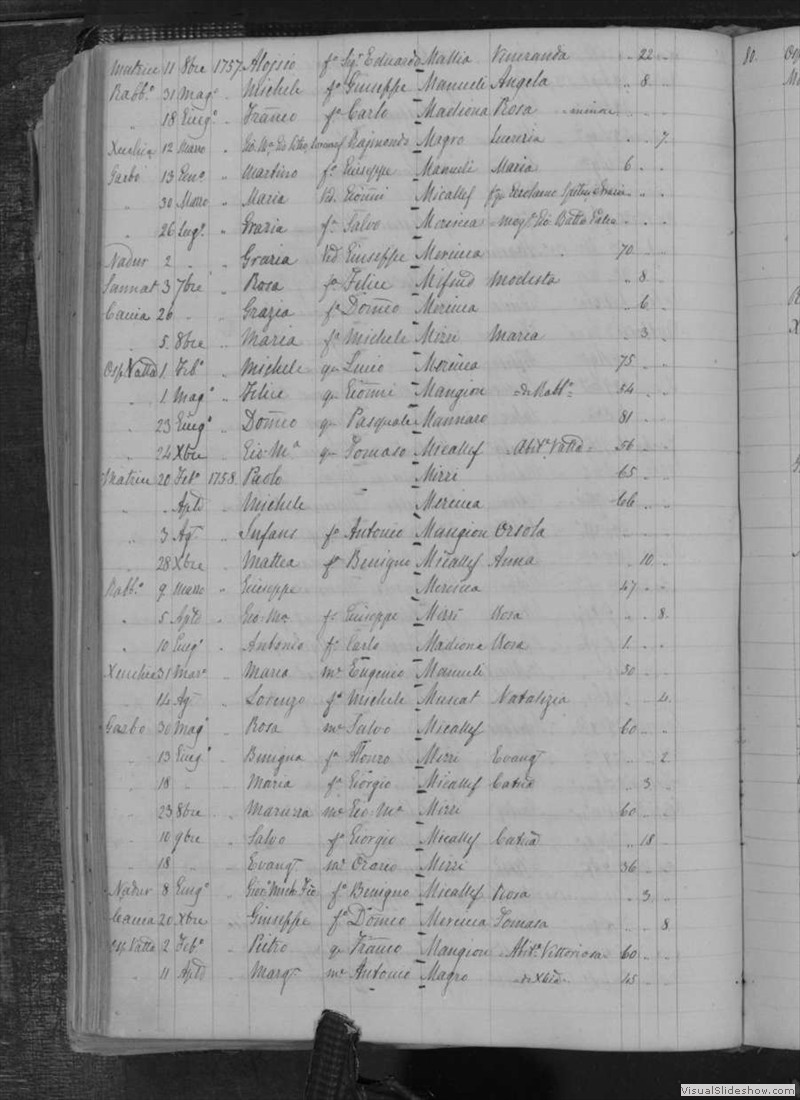 Matrice 11 8bre 1757 Aloisio fo Sigr. Eduardo Mallia Veneranda " 22 "
Rabbo. 31 Mago " Michele fo Giuseppe Manueli Angela " 8 "
" 18 Giugo " Franco fo Carlo Madiona Rosa minore " " "
Xeuchia 12 Marzo " Raimondo Magro Lucrezia " " 7
Garbo 13 " Martino fo Giuseppe Manueli Maria 6 " "
" 30 Marzo " Maria Ved. Gionni Micallef " " "
" 26 Lugo. " Grazia fa Salvo Mercieca mogl. Gio Batta " " "
Nadur 2 " " Grazia Ved Giuseppe Mercieca 70 " "
Sannat 3 7bre " Rosa fa Felice Mifsud Modesta " 8 "
Caccia 26 " " Grazia fa Domco Mercieca " 6 "
" 5 8bre " Maria fa Michele Mizzi Maria " 3 "
Osp. Vatta 1 Febo " Michele qm Mercieca 75 " "
" 1 Mago " Felice qm Gionni Mangion di Rabbo 54 " "
" 23 Giugo " Domco qm Pasquale Mannaro 81 " "
" 24 Xbre " Gio Ma qm Tomaso Micallef Abite Vatta 56 " "
Matrice 20 Febo 1758 Paolo Mizzi 65 " "
" " Aple " Michele Mercieca 66 " "
" 3 Ago " Infans fo Antonio Mangion Orsola " " "
" 28 Xbre " Mattea fa Benigno Micallef Anna " 10 "
Rabbo 9 Marzo " Giuseppe Mercieca 47 " "
" 5 Aple " Gio Ma fo Giuseppe Mizzi Rosa " " 8
" 10 Giugo " Antonio fo Carlo Madiona Rosa 1 " "
Xeuchia 31 Maro " Maria me Eugenio Manueli 50 " "
" 14 Ago " Lorenzo fo Michele Muscat Natalizia " " 4
Garbo 30 Mago " Rosa me Salvo Micallef 60 " "
" 13 Giugo " Benigna fa Alonzo Mizzi Evangta " " 2
" 18 " " Maria fa Giorgio Micallef Catna " 3 "
" 23 8bre " Maruzza me Gio Ma Mizzi 60 " "
" 10 9bre " Salvo fo Giorgio Micallef Catna " 18 "
" 18 " " Evangta me Orazio Mizzi 36 " "
Nadur 8 Giugo " fo Benigno Micallef Rosa " 3 "
Caccia 20 Xbre " Giuseppe fo Domco Mercieca Tomasa " " 8
Osp Vatta 2 Febo " Pietro qm Franco Mangion Abite Vittoriosa 60 " "
" 11 Aple " Margta me Antonio Magro di Xbia 45 " "
80.
VisualSlideshow.com